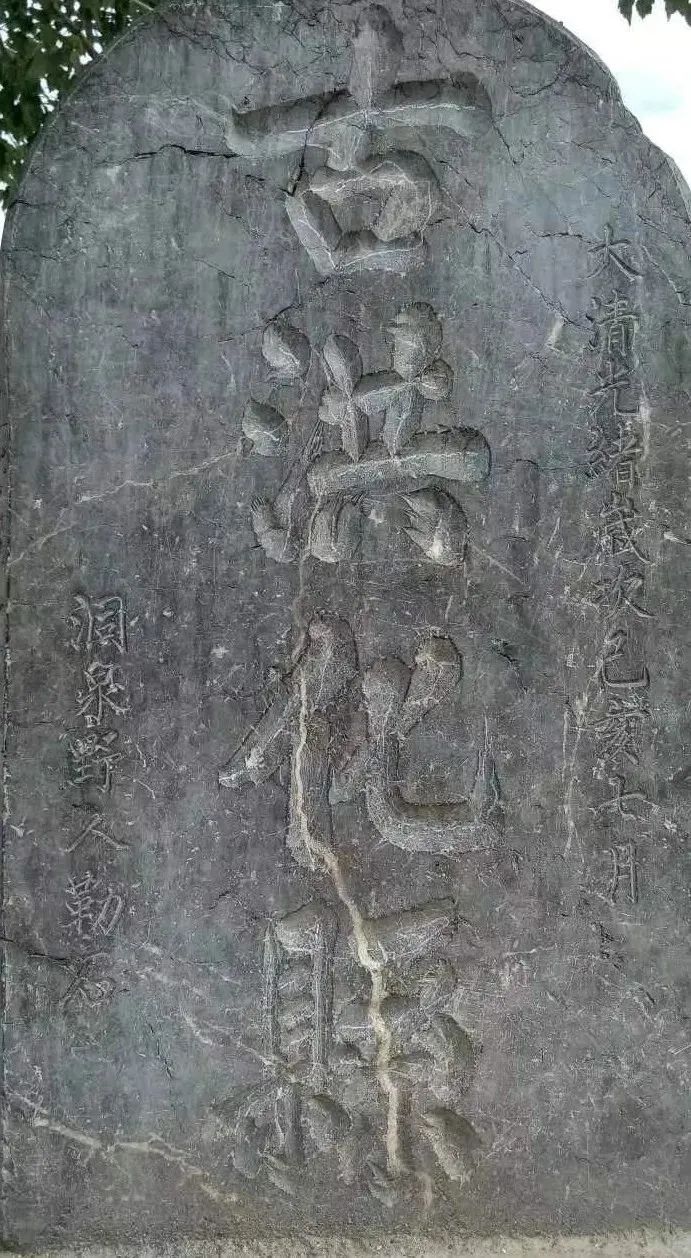 大清光緒歲次己亥七月
古洪化縣
洞泉野人勒石